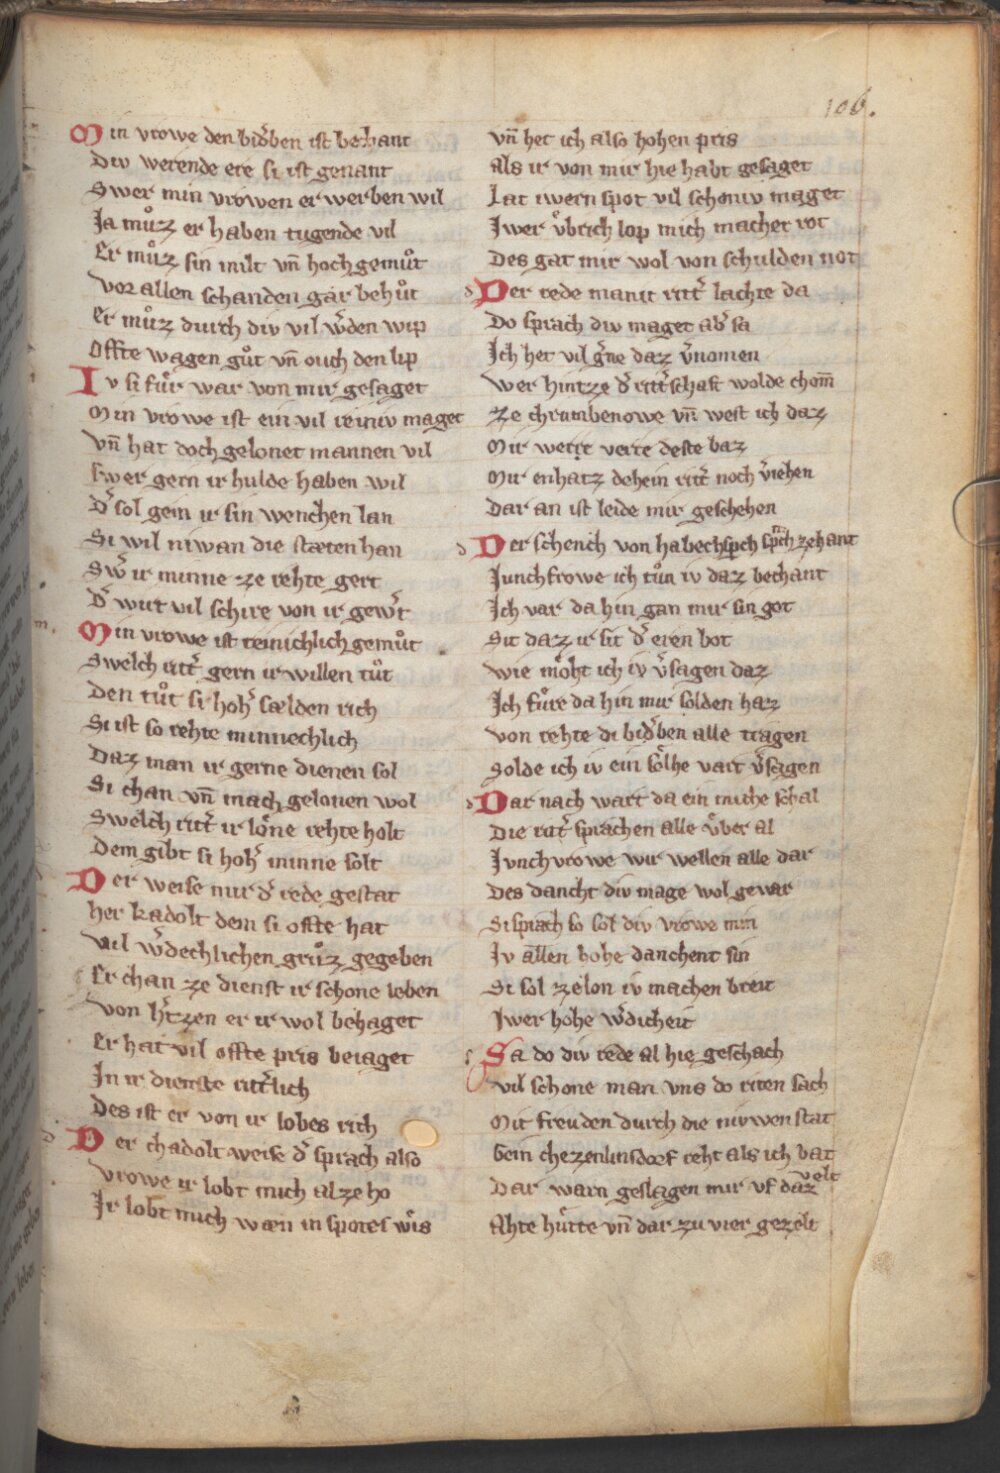 106.
Min vrowe den bid͛ben ist bechant
Div werende ere si ist genant
Swer min vrowen erwerben wil
Ja můz er haben tugende vil
Er můz sin milt vn̄ hochgemůt
Vor allen schanden gar behůt
Er můz durch div vil w͛den wip
Offte wagen gůt vn̄ ouch den lip
Iv si fůr war von mir gesaget
Min vrowe ist ein vil reiniv maget
Vn̄ hat doch gelonet mannen vil
Swer gern ir hulde haben wil
D͛ sol gein ir sin wenchen lan
Si wil niwan die stæten han
Sw͛ ir minne ze rehte gert
D͛ wirt vil schire von ir gew͛t
m.
Min vrowe ist reinichlich gemůt
Swelch ritt͛ gern ir willen tůt
Den tůt si hoh͛ sælden rich
Si ist so rehte minnechlich
Daz man ir gerne dienen sol
Si chan vn̄ mach gelonen wol
Swelch ritt͛ ir lone rehte holt
Dem gibt si hoh͛ minne solt
Der weise mir d͛ rede gestat
Her kadolt dem si offte hat
Vil w͛dechlichen grůz gegeben
Er chan ze dienst ir schone leben
Von h͛tzen er ir wol behaget
Er hat vil offte pris beiaget
In ir dienste ritt͛lich
Des ist er von ir lobes rich
Der chadolt weise d͛ sprach also
Vrowe ir lobt mich alze ho
Ir lobt mich wæn in spotes wis
Vn̄ het ich also hohen pris
Als ir von mir hie habt gesaget
Lat iwern spot vil schoniv maget
Iwer v͛brich lop mich machet rot
Des gat mir wol von schulden not
d Der rede manic ritt͛ lachte da
Do sprach div maget ab͛ sa
Ich het vil g͛ne daz v͛nomen
Wer hintze d͛ ritt͛schaft wolde chom̄
Ze chrumbenowe vn̄ west ich daz
Mir werre verte deste baz
Mir enhatz dehein ritt͛ noch v͛iehen
Dar an ist leide mir geschehen
d Der schench von habechspch spch zehant
Junchfrowe ich tůn iv daz bechant
Ich var da hin gan mir sin got
Sit daz ir sit d͛ eren bot
Wie mo̊ht ich iv v͛sagen daz
Ich fůre da hin mir solden haz
Von rehte di bid͛ben alle tragen
Solde ich iv ein solhe vart v͛sagen
d Dar nach wart da ein miche schal
Die ritt͛ sprachen alle v͛ber al
Junchvrowe wir wellen alle dar
Des dancht div mage wol gewar
Si sprach so sol div vrowe min
Iv allen hohe danchent sin
Si sol ze lon iv machen breit
Iwer hohe w͛dicheit
s Sa do div rede al hie geschach
Vil schone man vns do riten sach
Mit freuden durch die niwen stat
Gein chezenlinsdorf reht als ich bat
Dar warn geslagen mir vf daz velt
Ahte hůtte vn̄ dar zu vier gezelt